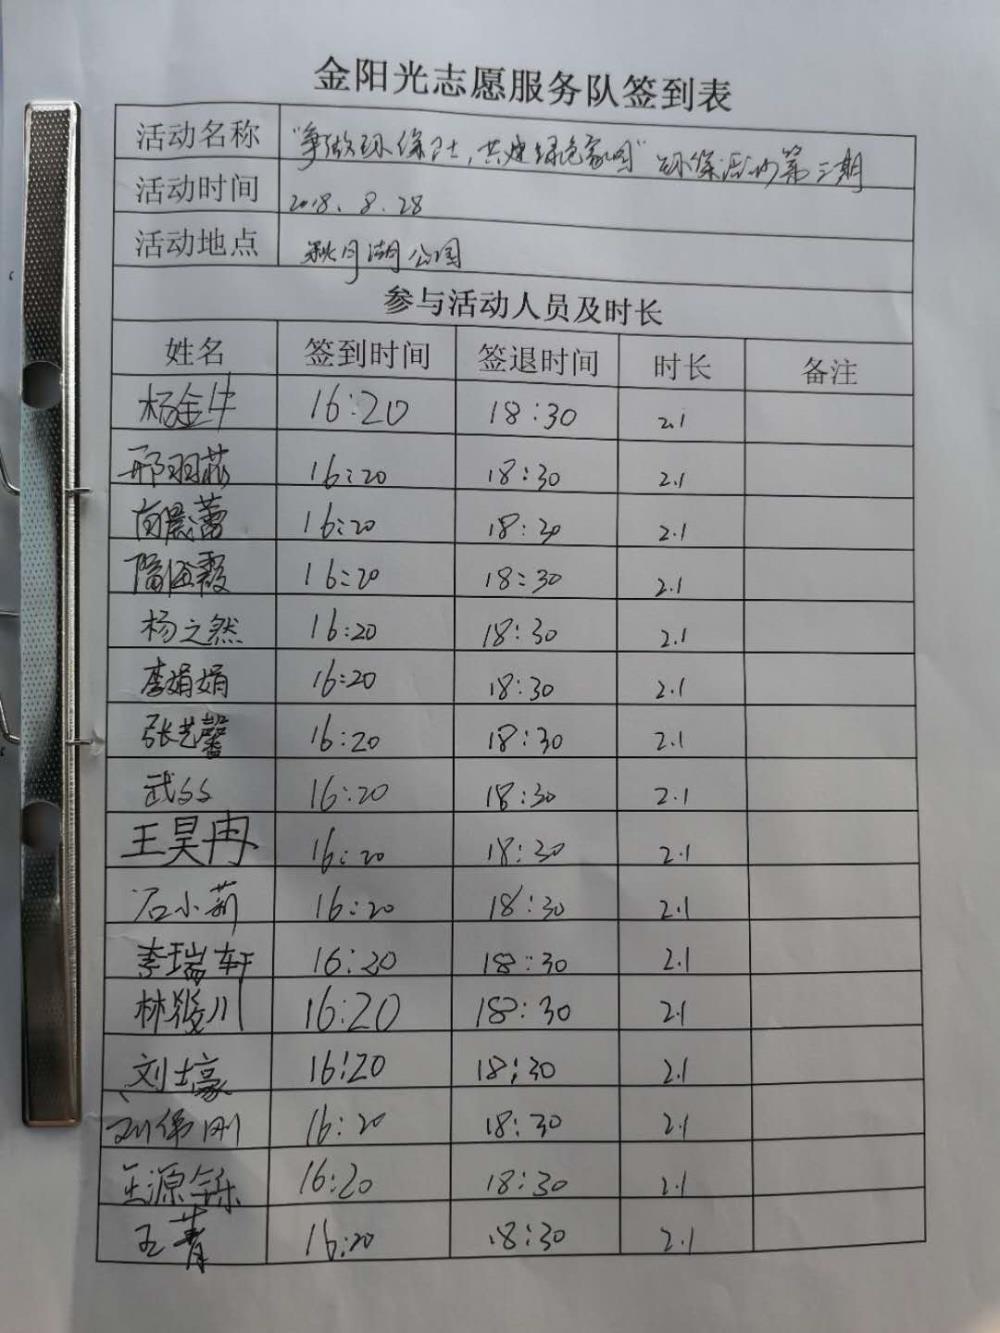 金阳光志愿服务队签到表
活动名称 "争做环保卫士,共建绿色家园"环保活动第三期
活动时间 2018.8.28
活动地点 秋月湖公园
参与活动人员及时长
姓名 签到时间 签退时间 时长 备注
杨金牛 16:20 18:30 2.1
邢羽菲 16:20 18:30 2.1
晨蕾 16:20 18:30 2.1
霞 16:20 18:30 2.1
杨之然 16:20 18:30 2.1
李娟娟 16:20 18:30 2.1
张艺馨 16:20 18:30 2.1
武SS 16:20 18:30 2.1
王昊冉 16:20 18:30 2.1
石小莉 16:20 18:30 2.1
秦瑞轩 16:20 18:30 2.1
林川 16:20 18:30 2.1
刘士豪 16:20 18:30 2.1
刘伟刚 16:20 18:30 2.1
王源铄 16:20 18:30 2.1
王菁 16:20 18:30 2.1